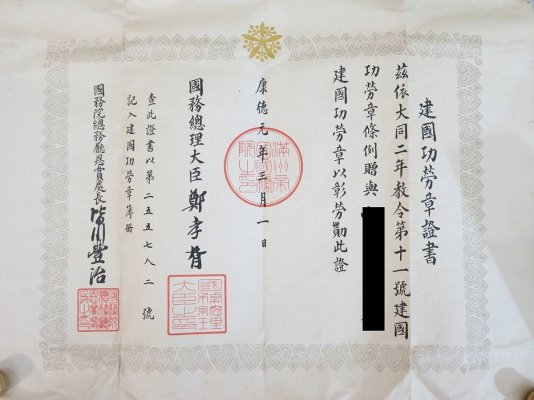 建國功勞章證書
茲依大同二年教令第十一號建國
功勞章條例贈與
建國功勞章以彰勞勩此證
康德元年三月一日
國務總理大臣 鄭孝胥
查此證書以第二五五七八二號
記入建國功勞章簿冊
國務院總務廳恩賞處長 皆川豐治